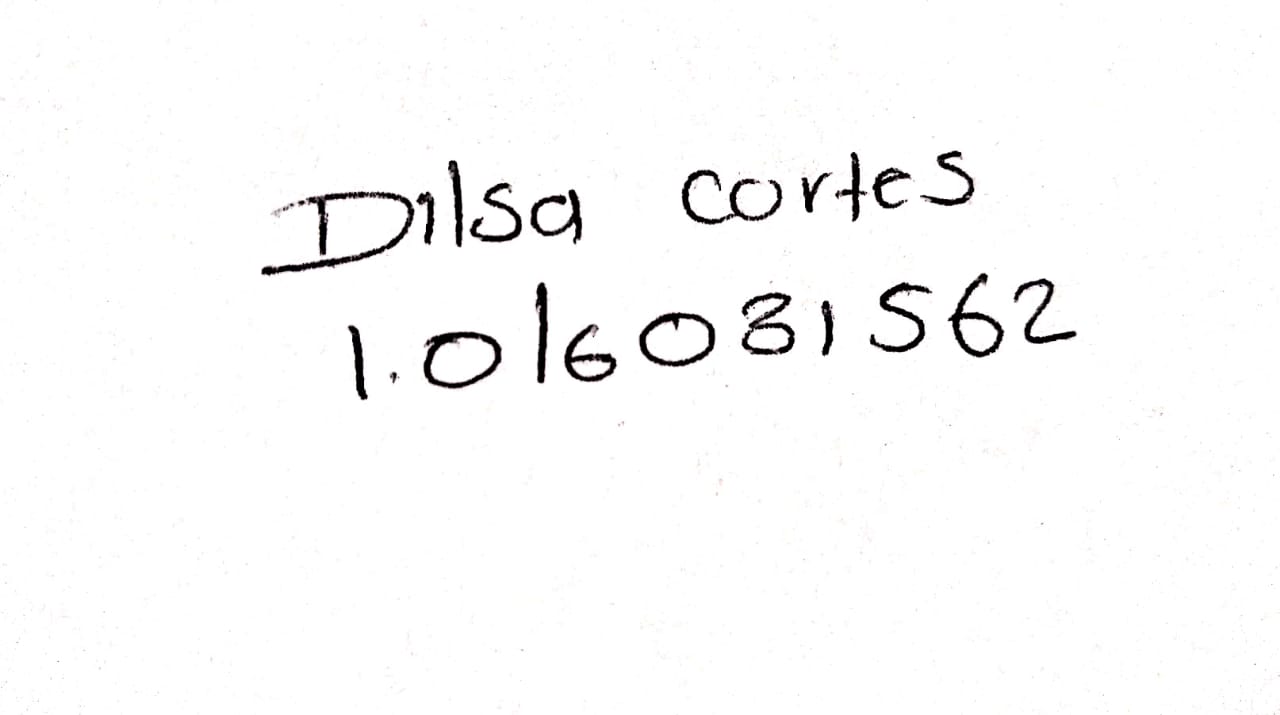 Dilsa cortes
1.016031562